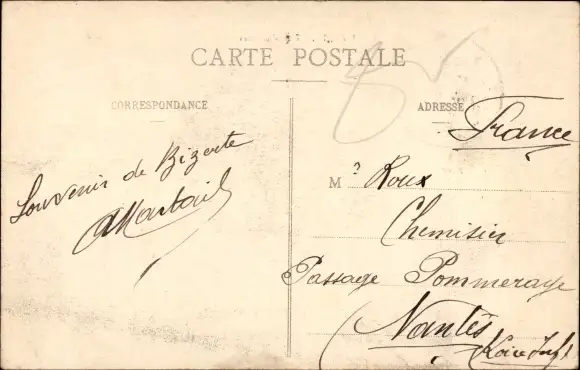 CARTE POSTALE
CORRESPONDANCE
Souvenir de Bizerte
ADRESSE
France
M r Roux
Chemisier
Passage Pommeraye
Nantes
Loire Inf